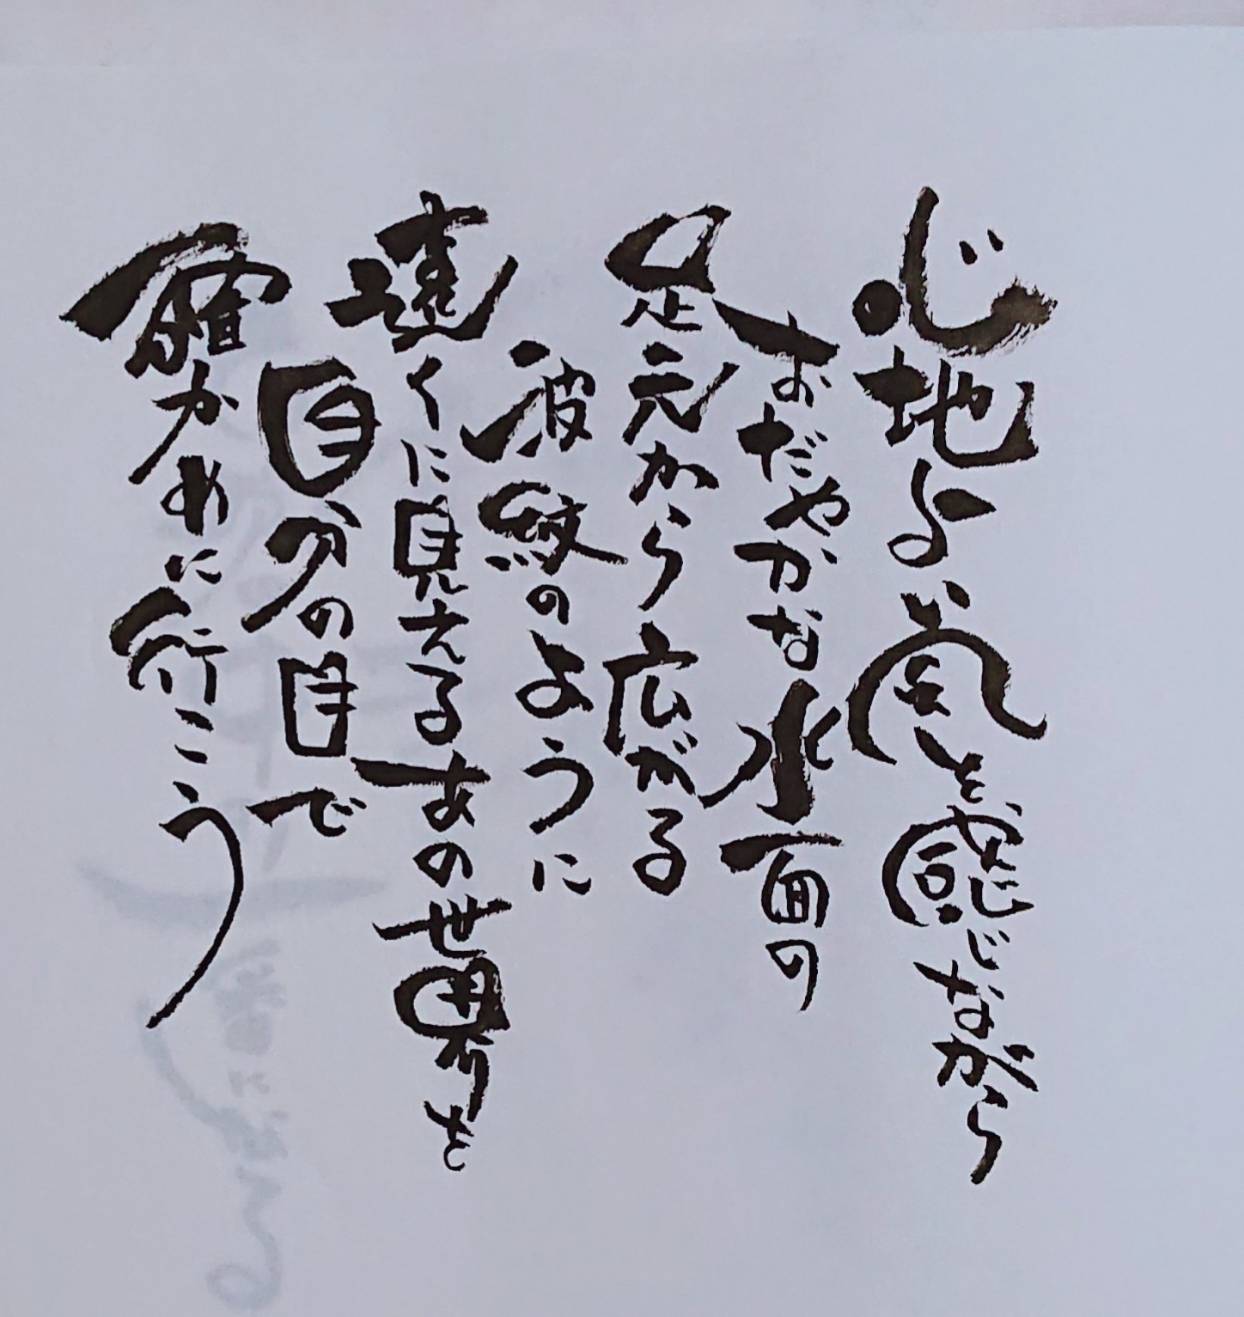 心地よい風を感じながら
おだやかな水面の
足元から広がる
波紋のように
遠くに見えるあの世界を
自分の目で
確かめに行こう